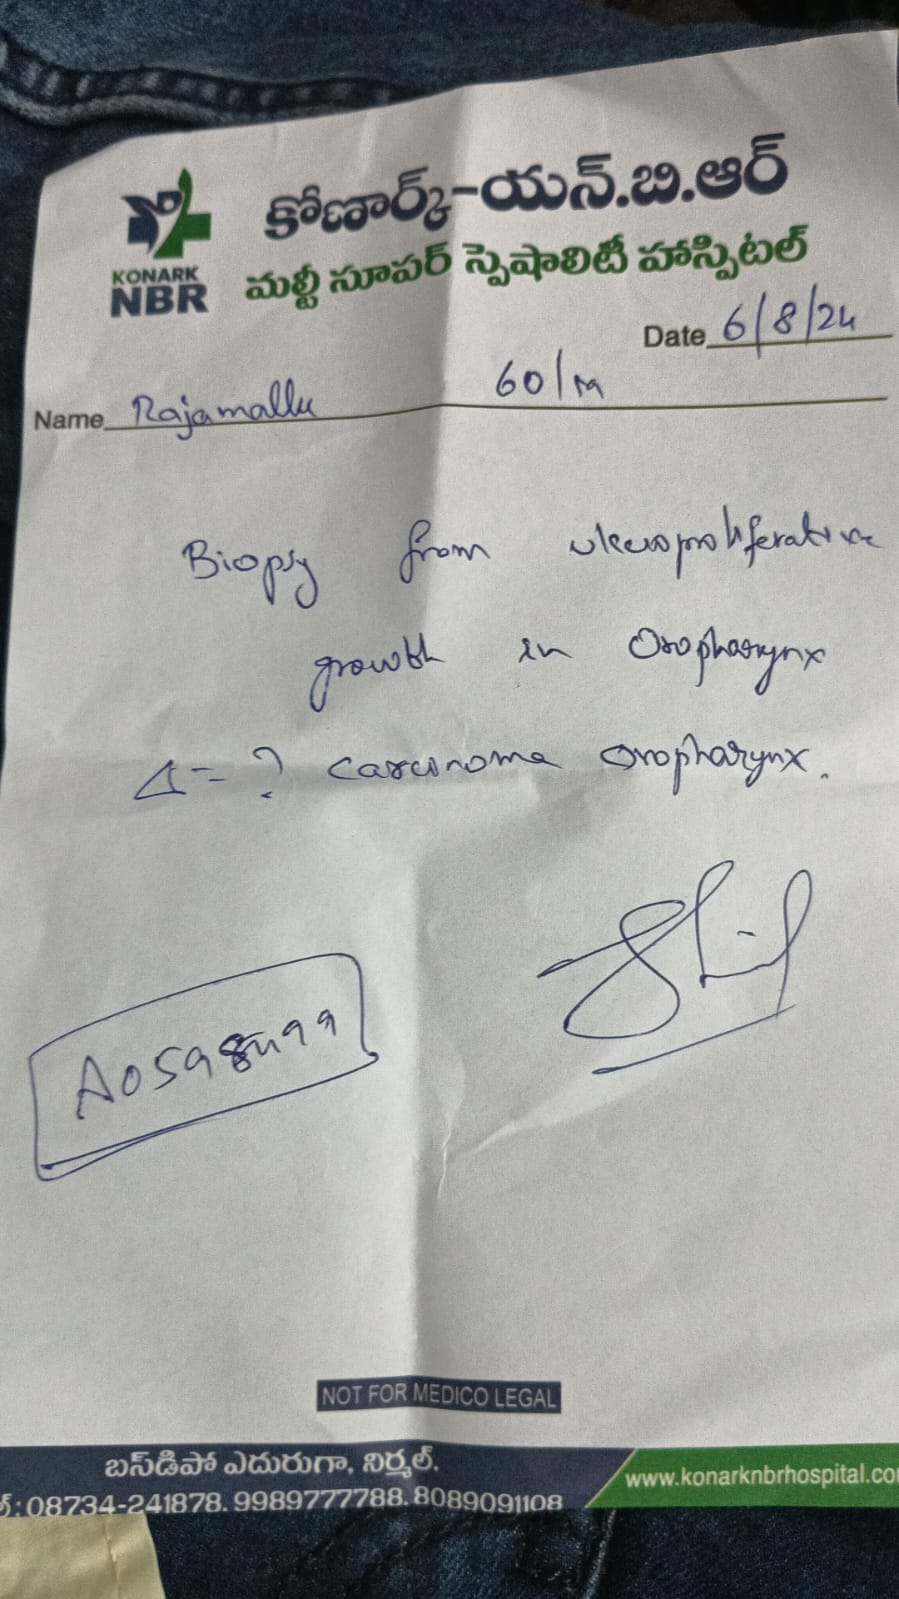 KONARK
NBR
కోణార్క్-యన్.బి.ఆర్
మల్టీ సూపర్ స్పెషాలిటీ హాస్పిటల్
Date 6/8/24
Name Rajamallu 60/M
Biopsy from ulceroproliferative
growth in Oropharynx
Δ= ? carcinoma oropharynx.
NOT FOR MEDICO LEGAL
బస్‌డిపో ఎదురుగా, నిర్మల్.
08734-241878. 9989777788. 8089091108
www.konarknbrhospital.co